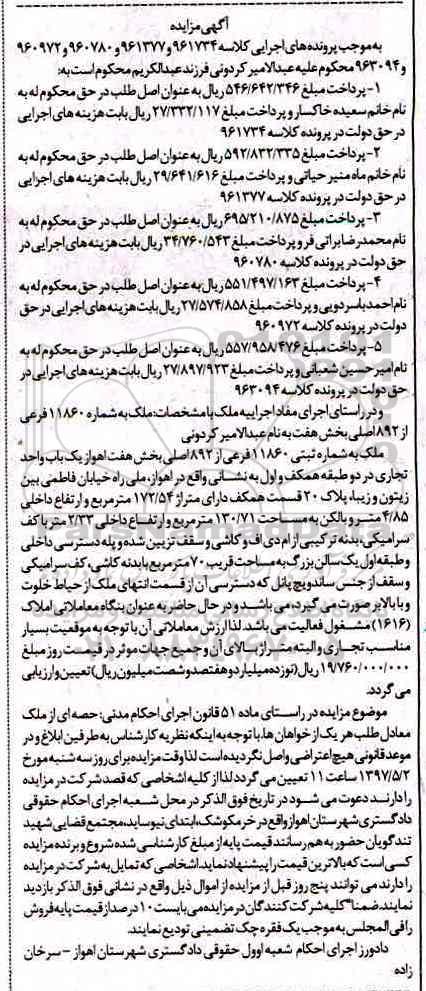 آگهی مزایده
به موجب پرونده های اجرایی کلاسه ۹۶۱۷۳۴ و ۹۶۱۳۷۷ و ۹۶۰۷۸۰ و ۹۶۰۹۷۲
و ۹۶۳۰۹۴ محکوم علیه عبدالامیر کردونی فرزند عبدالکریم محکوم است به:
۱- پرداخت مبلغ ۵۴۶/۶۴۲/۳۴۶ ریال به عنوان اصل طلب در حق محکوم له به
نام خانم سعیده خاکسار و پرداخت مبلغ ۲۷/۳۳۲/۱۱۷ ریال بابت هزینه های اجرایی
در حق دولت در پرونده کلاسه ۹۶۱۷۳۴
۲- پرداخت مبلغ ۵۹۲/۸۳۲/۳۳۵ ریال به عنوان اصل طلب در حق محکوم له به
نام خانم ماه منیر حیاتی و پرداخت مبلغ ۲۹/۶۴۱/۶۱۶ ریال بابت هزینه های اجرایی
در حق دولت در پرونده کلاسه ۹۶۱۳۷۷
۳- پرداخت مبلغ ۶۹۵/۲۱۰/۸۷۵ ریال به عنوان اصل طلب در حق محکوم له به
نام محمدرضا براتی فر و پرداخت مبلغ ۳۴/۷۶۰/۵۴۳ ریال بابت هزینه های اجرایی در
حق دولت در پرونده کلاسه ۹۶۰۷۸۰
۴- پرداخت مبلغ ۵۵۱/۴۹۷/۱۶۳ ریال به عنوان اصل طلب در حق محکوم له به
نام احمد باسردویی و پرداخت مبلغ ۲۷/۵۷۴/۸۵۸ ریال بابت هزینه های اجرایی در حق
دولت در پرونده کلاسه ۹۶۰۹۷۲
۵- پرداخت مبلغ ۵۵۷/۹۵۸/۴۷۶ ریال به عنوان اصل طلب در حق محکوم له به
نام امیر حسین شعبانی و پرداخت مبلغ ۲۷/۸۹۷/۹۲۳ ریال بابت هزینه های اجرایی در
حق دولت در پرونده کلاسه ۹۶۳۰۹۴
و در راستای اجرای مفاد اجراییه ملک با مشخصات: ملک به شماره ۱۱۸۶۰ فرعی
از ۸۹۲ اصلی بخش هفت به نام عبدالامیر کردونی
ملک به شماره ثبتی ۱۱۸۶۰ فرعی از ۸۹۲ اصلی بخش هفت اهواز یک باب واحد
تجاری در دو طبقه همکف و اول به نشانی واقع در اهواز، ملی راه خیابان فاطمی بین
زیتون و زیبا، پلاک ۲۰ قسمت همکف دارای متراژ ۱۷۲/۵۴ متر مربع و ارتفاع داخلی
۴/۸۵ متر و بالکن به مساحت ۱۳۰/۷۱ مترمربع و ارتفاع داخلی ۲/۳۳ متر با کف
سرامیکی، بدنه ترکیبی از ام دی اف و کاشی و سقف تزیین شده و پله دسترسی داخلی
و طبقه اول یک سالن بزرگ به مساحت قریب ۷۰ مترمربع با بدنه کاشی، کف سرامیکی
و سقف از جنس ساندویچ پانل که دسترسی آن از قسمت انتهای ملک از حیاط خلوت
و یا بالابر صورت می گیرد، می باشد و در حال حاضر به عنوان بنگاه معاملاتی املاک
(۱۶۱۶) مشغول فعالیت می باشد. لذا ارزش معاملاتی آن با توجه به موقعیت بسیار
مناسب تجاری و البته متراژ بالای آن و جمیع جهات موثر در قیمت روز مبلغ
۱۹/۷۶۰/۰۰۰/۰۰۰ ریال (نوزده میلیارد و هفتصد و شصت میلیون ریال) تعیین و ارزیابی
می گردد.
موضوع مزایده در راستای ماده ۵۱ قانون اجرای احکام مدنی: حصه ای از ملک
معادل طلب هر یک از خواهان ها، با توجه به اینکه نظریه کارشناس به طرفین ابلاغ و در
موعد قانونی هیچ اعتراضی واصل نگردیده است لذا وقت مزایده برای روز سه شنبه مورخ
۱۳۹۷/۵/۲ ساعت ۱۱ تعیین می گردد لذا از کلیه اشخاصی که قصد شرکت در مزایده
را دارند دعوت می شود در تاریخ فوق الذکر در محل شعبه اجرای احکام حقوقی
دادگستری شهرستان اهواز واقع در خرمکوشک، ابتدای نیوساید، مجتمع قضایی شهید
تندگویان حضور به هم رسانند قیمت پایه از مبلغ کارشناسی شده شروع و برنده مزایده
کسی است که بالاترین قیمت را پیشنهاد نماید. اشخاصی که تمایل به شرکت در مزایده
را دارند می توانند پنج روز قبل از مزایده از اموال ذیل واقع در نشانی فوق الذکر بازدید
نمایند. ضمنا" کلیه شرکت کنندگان در مزایده می بایست ۱۰ درصد از قیمت پایه فروش
را فی المجلس به موجب یک فقره چک تضمینی تودیع نمایند.
دادورز اجرای احکام شعبه اول حقوقی دادگستری شهرستان اهواز - سرخان
زاده